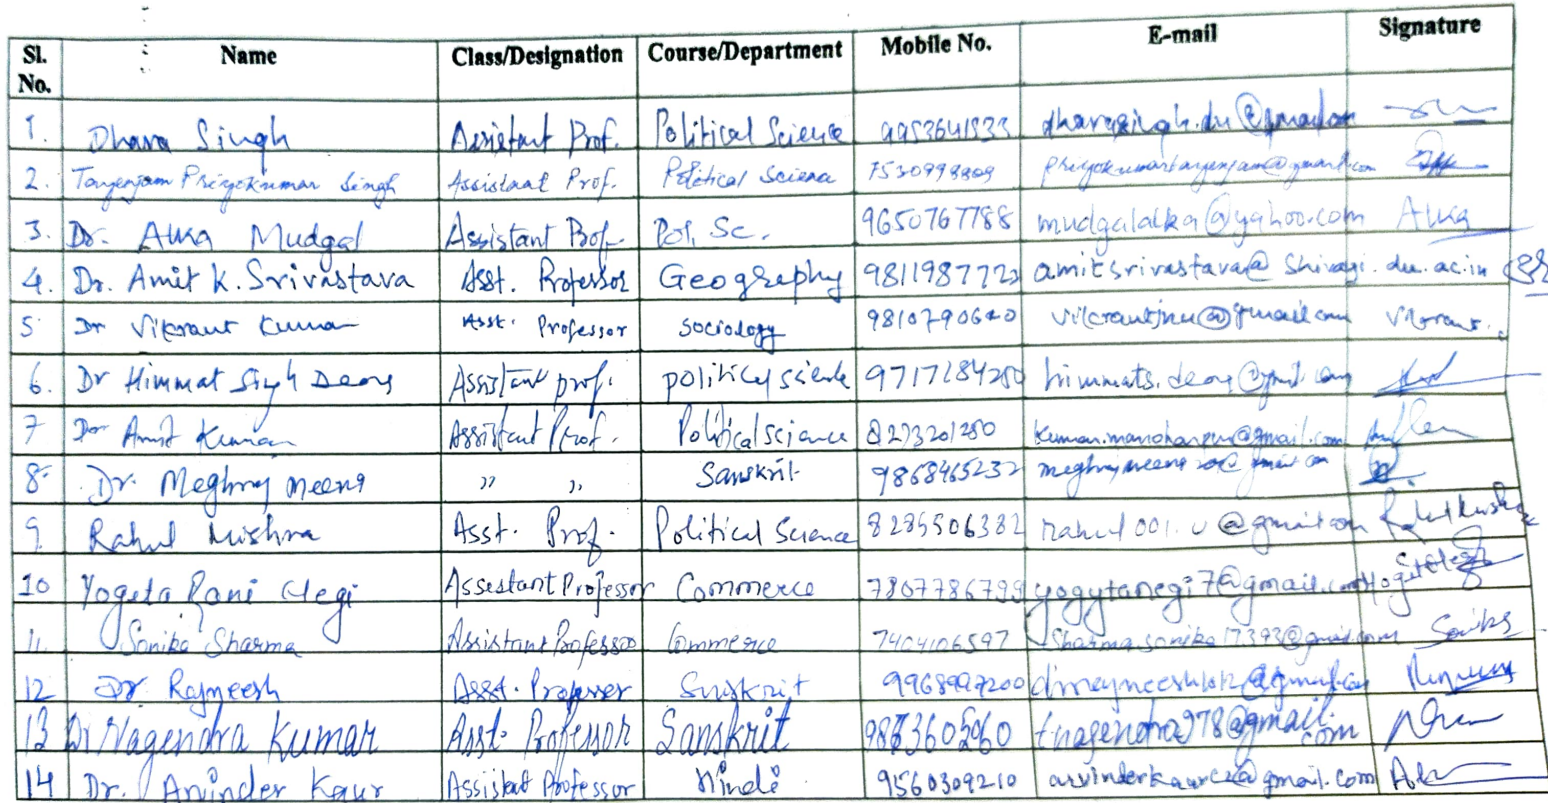 Sl. No. Name Class/Designation Course/Department Mobile No. E-mail Signature
1. Dhara Singh Assistant Prof. Political Science 9953641533
2. Tayenjam Priyokumar Singh Assistant Prof. Political Science priyokumartayenjam@gmail.com
3. Dr. Alka Mudgal Assistant Prof. Pol. Sc. 9650767788 mudgalalka@yahoo.com Alka
4. Dr. Amit K. Srivastava Asst. Professor Geography amitsrivastava@shivaji.du.ac.in
5 Dr Vikrant Kumar Asst. Professor Sociology 9810790640 vikrantjnu@gmail.com Vikrant
6. Dr Himmat Singh Assistant prof. political science 9717284250
7 Dr Amit Kumar Assistant Prof. Political science 8273201280 kumar.manoharpur@gmail.com
8. Dr. Meghraj Meena ,, ,, Sanskrit 9868465232
9. Rahul Mishra Asst. Prof. Political Science 8285506382 rahul001.u@gmail.com
10 Yogita Rani Negi Assestant Professor Commerce 7807786799 yogytanegi7@gmail.com
11. Sonika Sharma Assistant Professor Commerce 7404106597 Sharma.sonika17393@gmail.com
12 Dr Rajneesh Asst. Professor Sanskrit
13 Dr Nagendra Kumar Asst. Professor Sanskrit tnagendra978@gmail.com
14 Dr. Arvinder Kaur Assistant Professor Hindi 9560309210 arvinderkaurcz@gmail.com